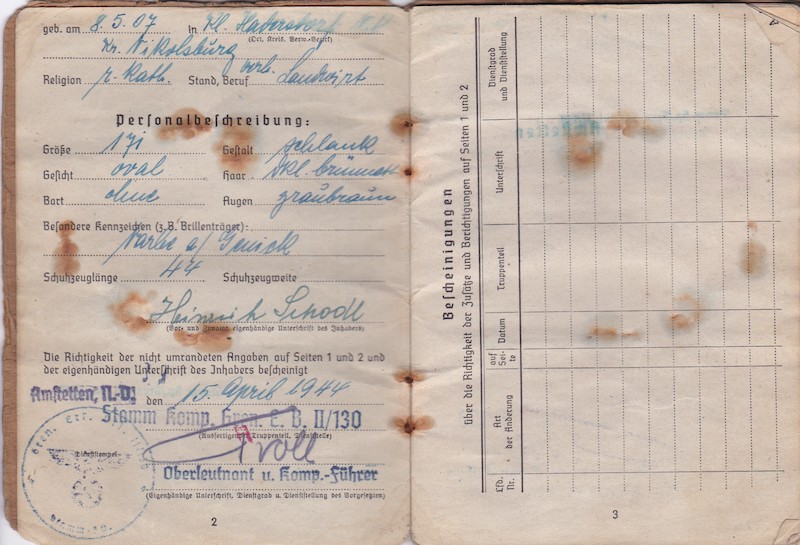 geb. am 8.5.07 in Kl. Hadersdorf N.D.
(Ort, Kreis, Verw.-Bezirk)
Kr. Nikolsburg
Religion r. kath. Stand, Beruf verh. Landwirt
Personalbeschreibung:
Größe 171 Gestalt schlank
Gesicht oval Haar dkl. brünett
Bart ohne Augen graubraun
Besondere Kennzeichen (z.B. Brillenträger):
Narbe a/ Genick
Schuhzeuglänge 44 Schuhzeugweite
Heinrich Schodl
(Vor- und Zuname, eigenhändige Unterschrift des Inhabers)
Die Richtigkeit der nicht umrandeten Angaben auf Seiten 1 und 2 und
der eigenhändigen Unterschrift des Inhabers bescheinigt
Amstetten, N.-D. den 15. April 1944
Stamm Komp. Gren. E. B. II/130
(Ausfertigender Truppenteil, Dienststelle)
Dienststempel
Oberleutnant u. Komp.-Führer
(Eigenhändige Unterschrift, Dienstgrad u. Dienststellung des Vorgesetzten)
2
Bescheinigungen
über die Richtigkeit der Zusätze und Berichtigungen auf Seiten 1 und 2
Lfd. Nr.
Art der Änderung
auf Seite
Datum
Truppenteil
Unterschrift
Dienstgrad und Dienststellung
3